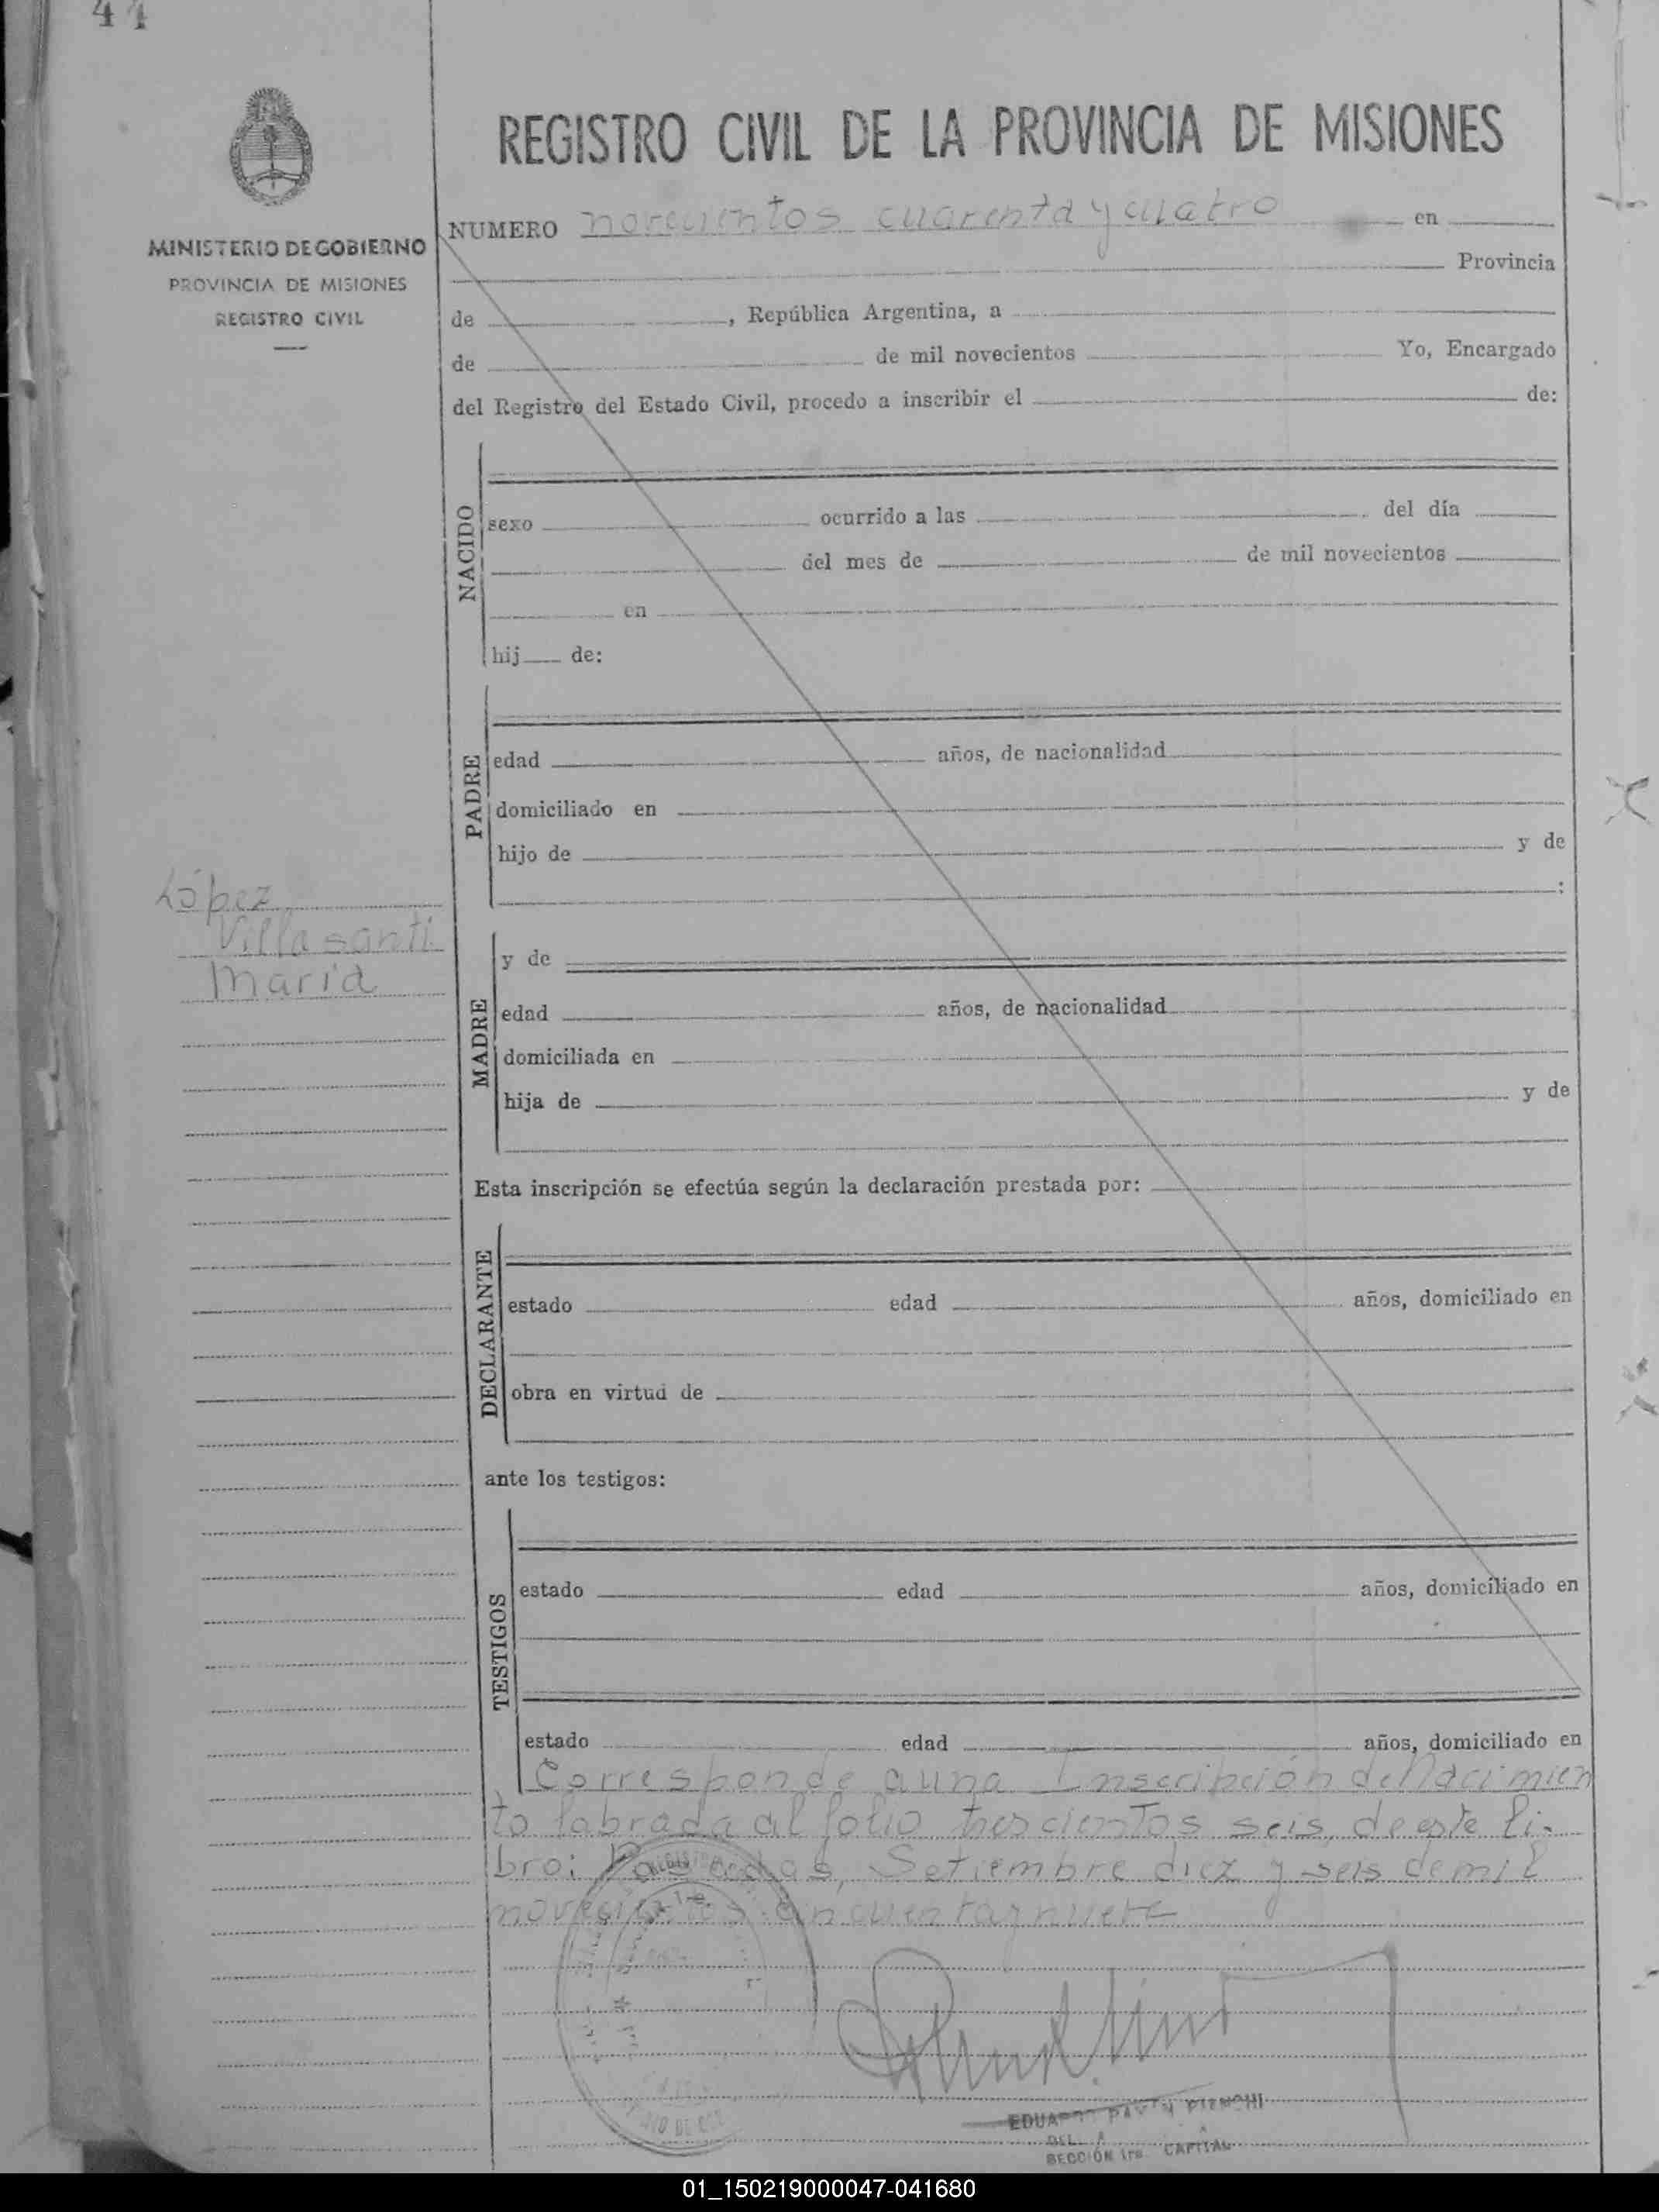 44
REGISTRO CIVIL DE LA PROVINCIA DE MISIONES
MINISTERIO DE GOBIERNO
PROVINCIA DE MISIONES
REGISTRO CIVIL
NUMERO novecientos cuarenta y cuatro en
Provincia
de , República Argentina, a
de de mil novecientos Yo, Encargado
del Registro del Estado Civil, procedo a inscribir el de:
NACIDO
sexo ocurrido a las del día
del mes de de mil novecientos
en
hij de:
PADRE
edad años, de nacionalidad
domiciliado en
hijo de y de
:
López
Villasanti
María
MADRE
y de
edad años, de nacionalidad
domiciliada en
hija de y de
Esta inscripción se efectúa según la declaración prestada por:
DECLARANTE
estado edad años, domiciliado en
obra en virtud de
ante los testigos:
TESTIGOS
estado edad años, domiciliado en
estado edad años, domiciliado en
Corresponde a una Inscripción de Nacimien
to labrada al folio trescientos seis, de este li-
bro: Posadas, Setiembre diez y seis de mil
novecientos cincuenta y nueve
EDUARDO BIANCHI
SECCIÓN 1ra. CAPITAL
01_150219000047-041680